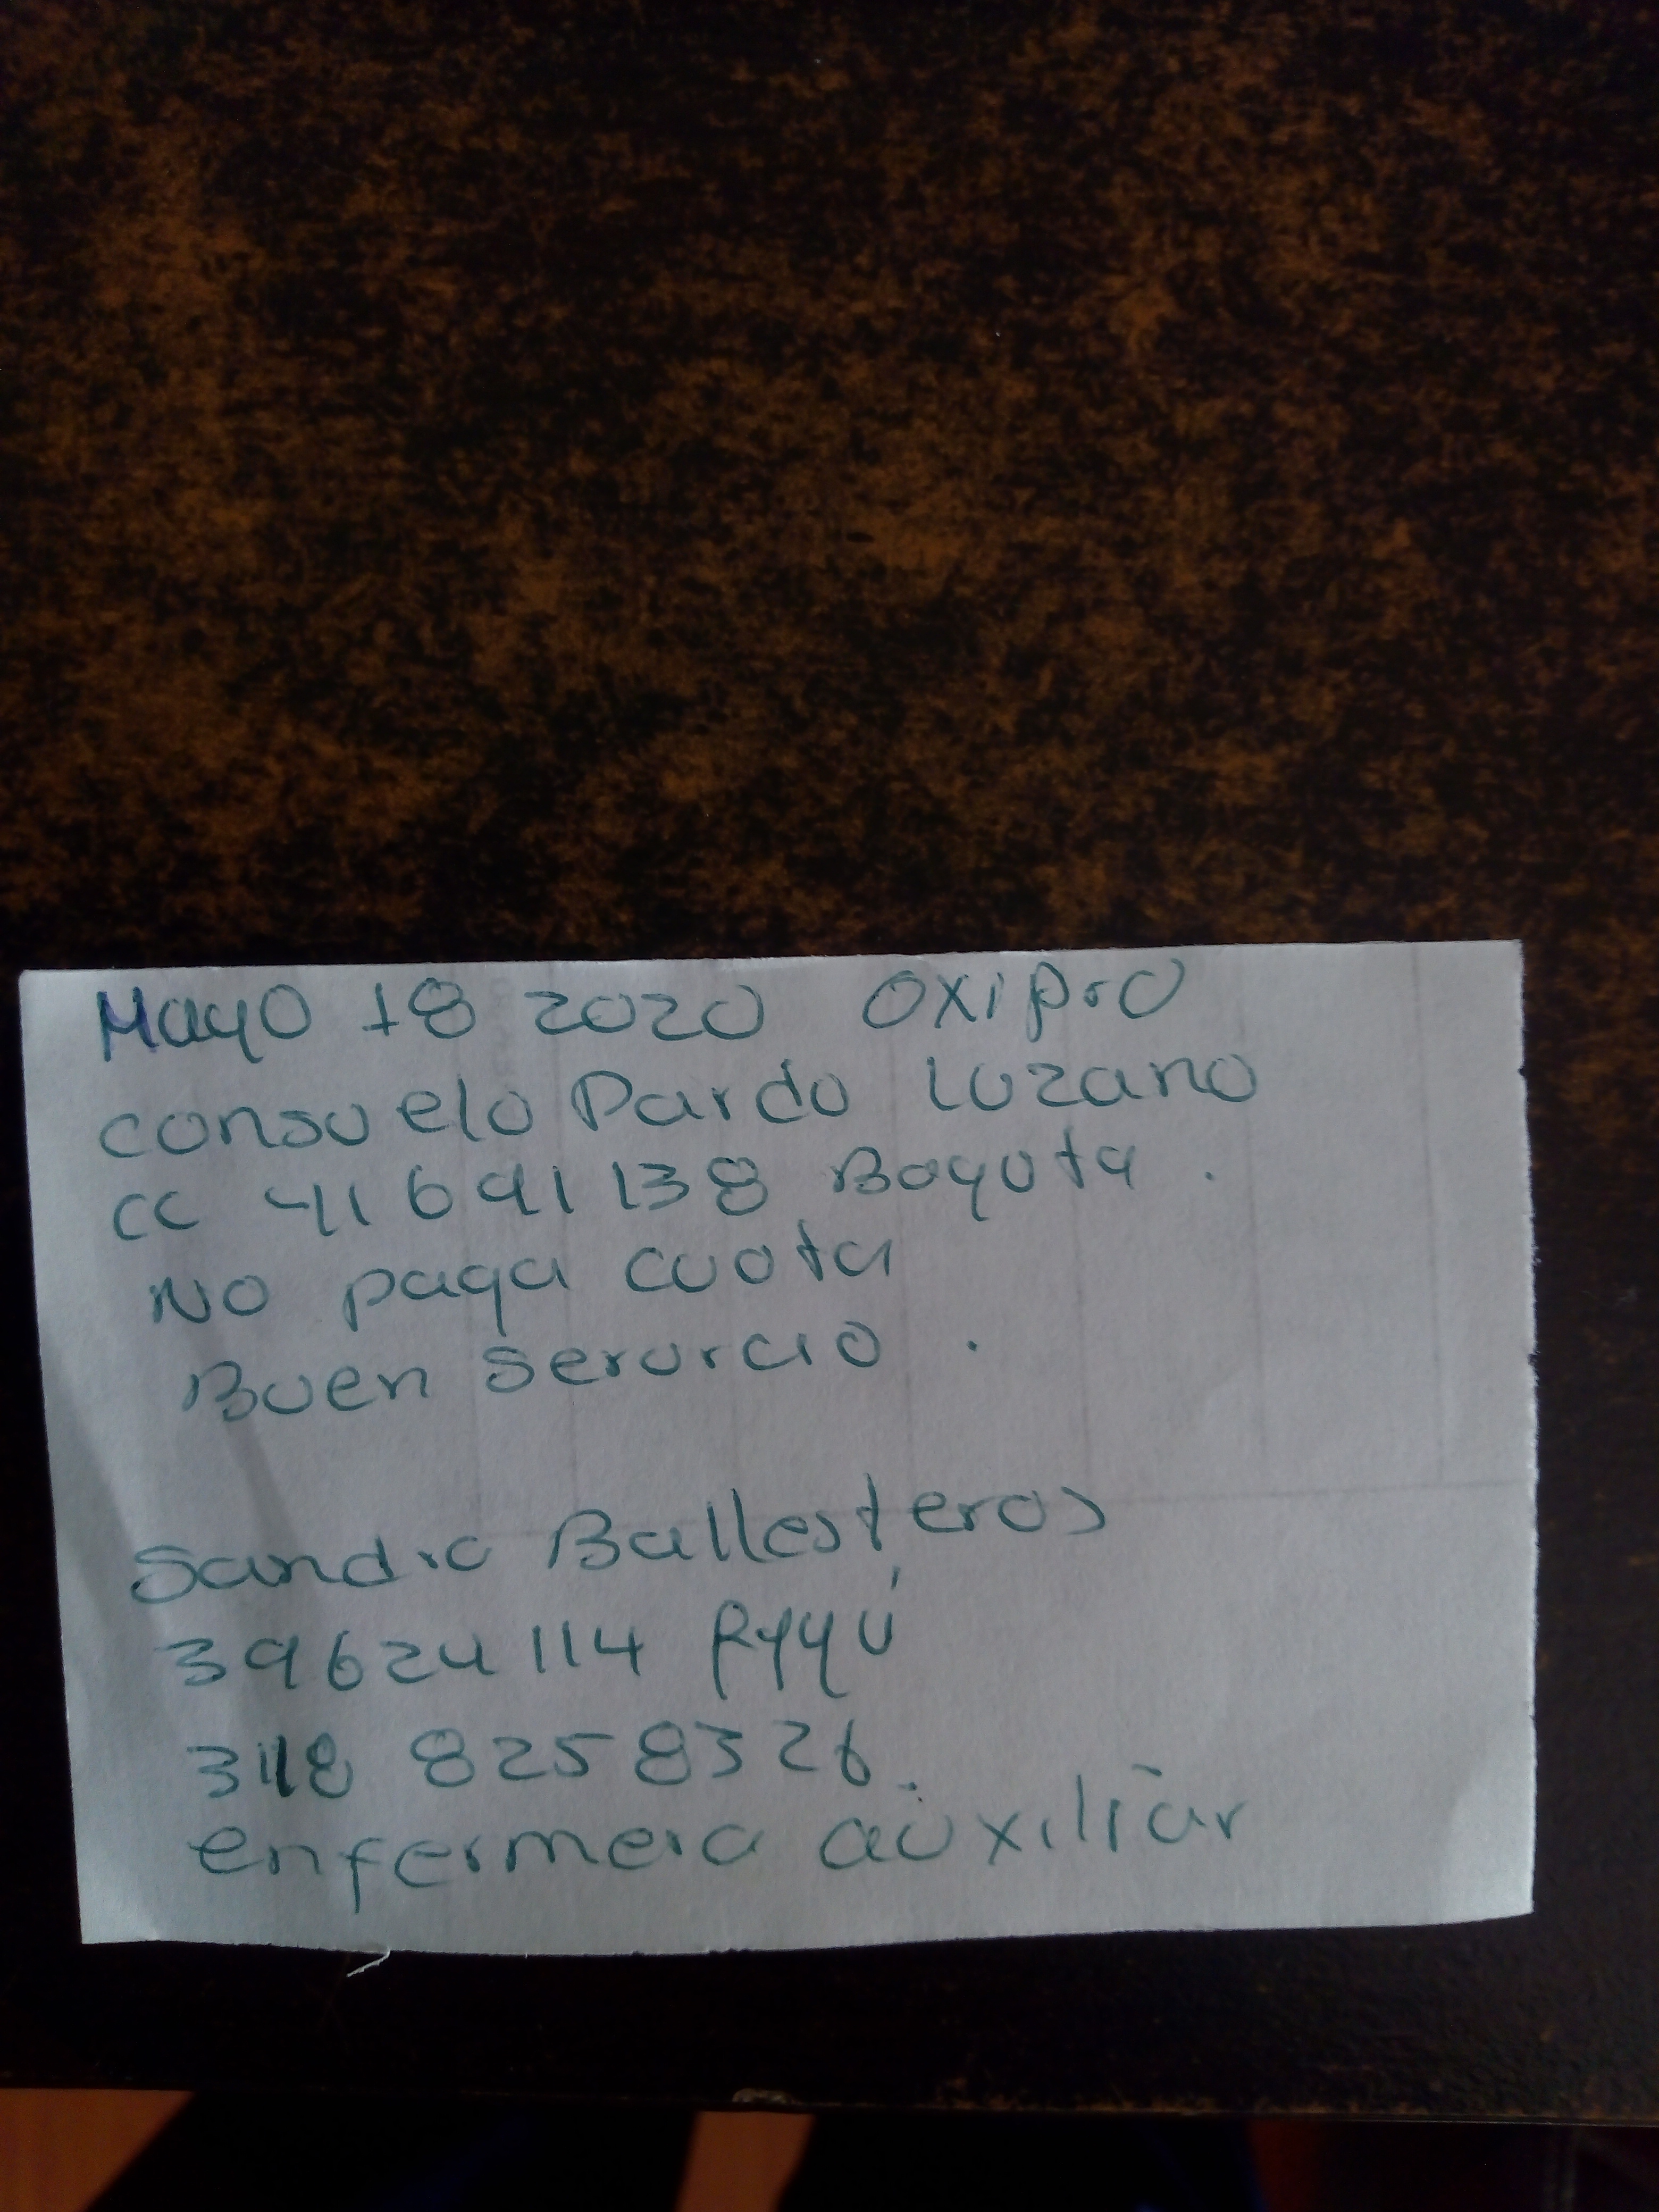 Mayo 18 2020 OXIPRO
consuelo Pardo Lozano
CC 41691138 Bogota.
NO paga cuota
Buen servicio.
Sandra Ballesteros
39624114 Fyyú
318 8258326.
enfermera auxiliar